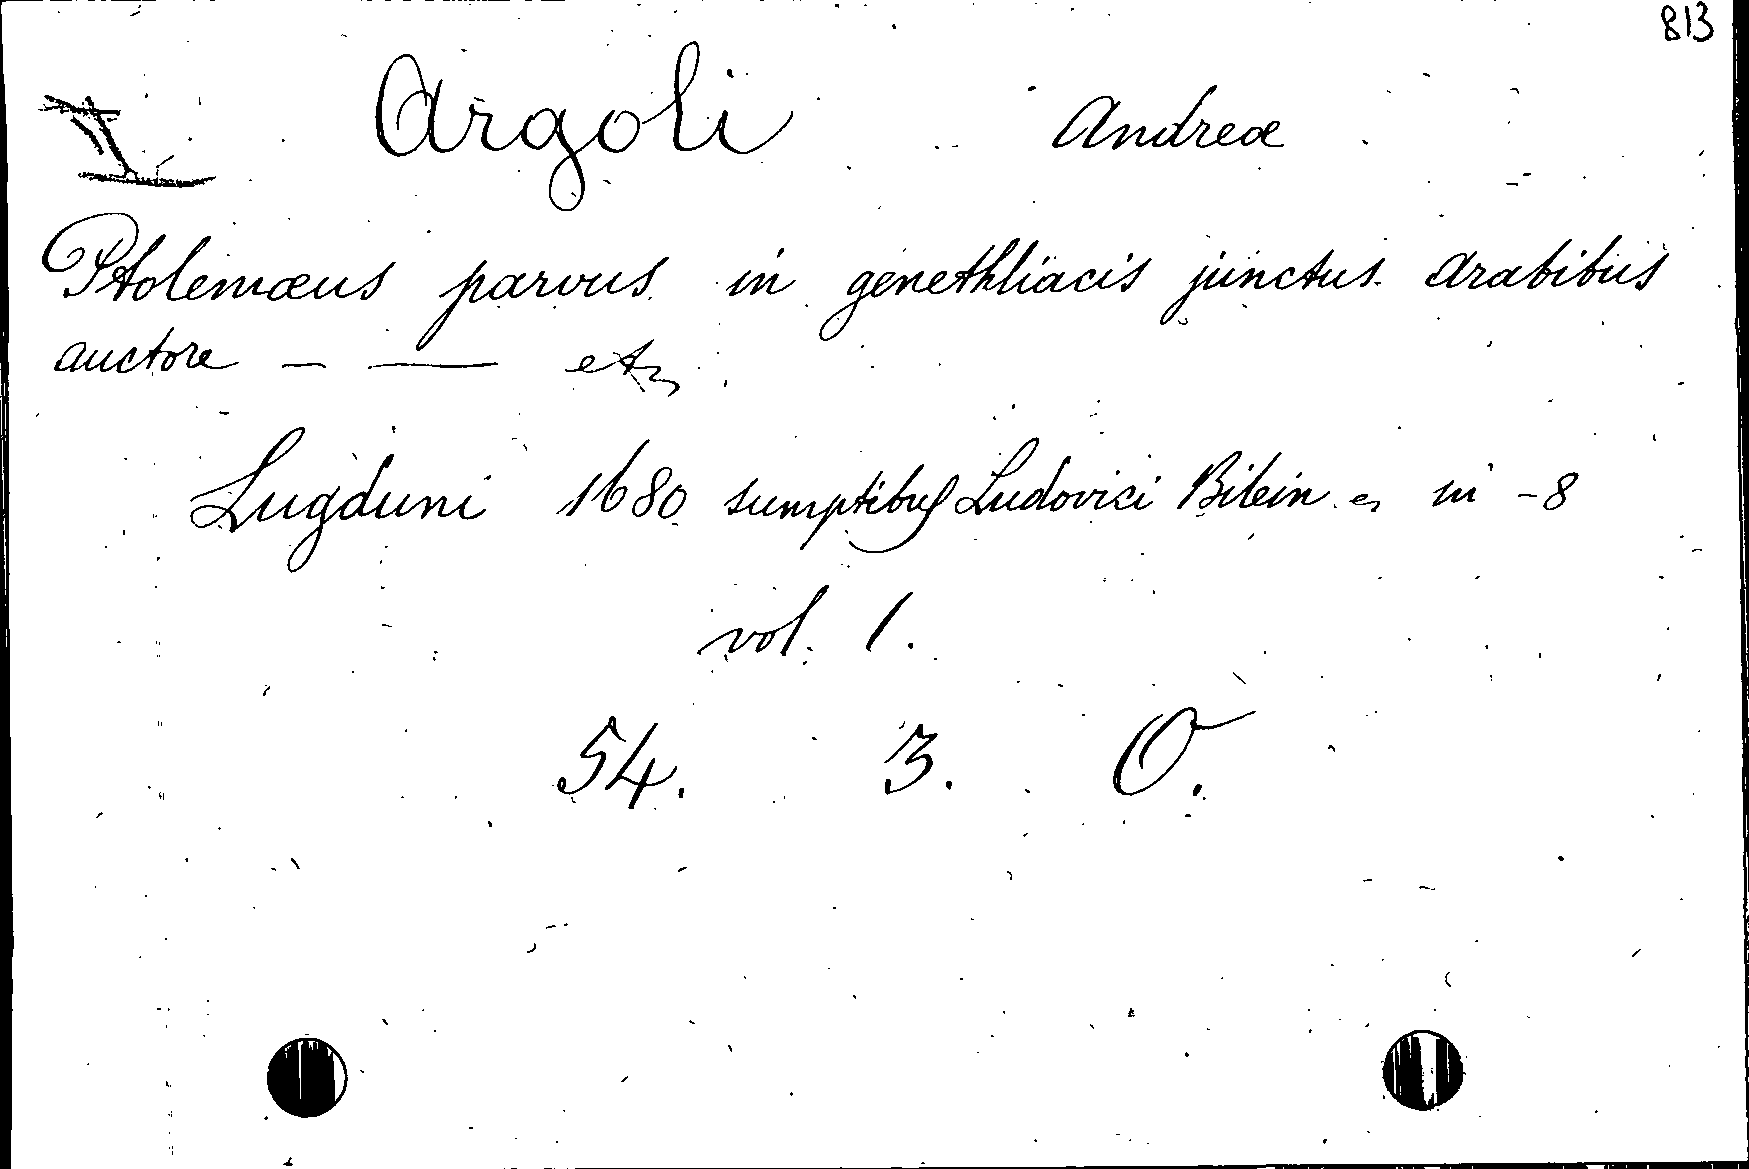 813
Argoli Andreæ
Ptolemæus parvus in genethliacis junctus Arabibus
auctore — — etc
Lugduni 1680 sumptibus Ludovici Bilein in -8
vol. 1.
54. 3. O.